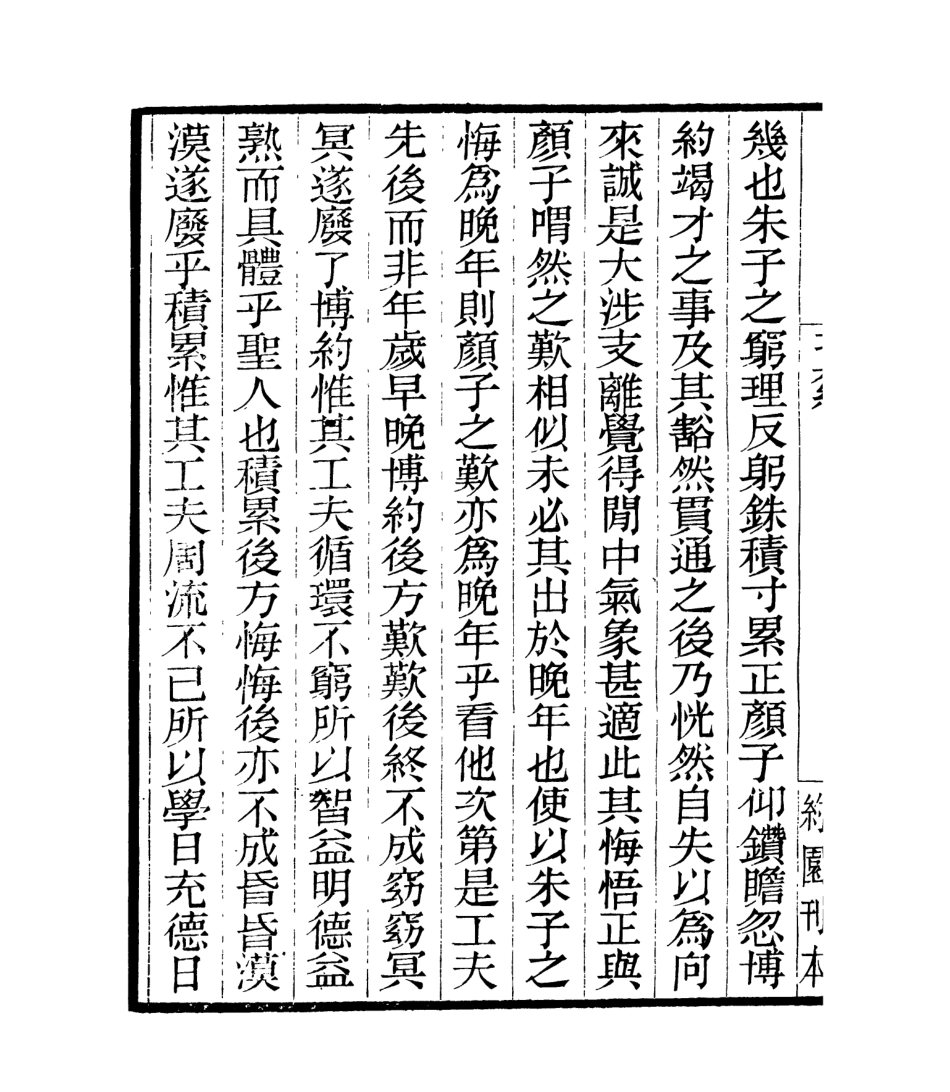 幾也朱子之窮理反躬銖積寸累正顏子仰鑽瞻忽博
約竭才之事及其豁然貫通之後乃恍然自失以為向
來誠是大涉支離覺得閒中氣象甚適此其悔悟正與
顏子喟然之歎相似未必其出於晚年也使以朱子之
悔爲晚年則顏子之歎亦爲晚年乎看他次第是工夫
先後而非年歲早晚博約後方歎歎後終不成窈窈冥
冥遂廢了博約惟其工夫循環不窮所以智益明德益
熟而具體乎聖人也積累後方悔悔後亦不成昏昏漠
漠遂廢乎積累惟其工夫周流不已所以學日充德日
約園刊本